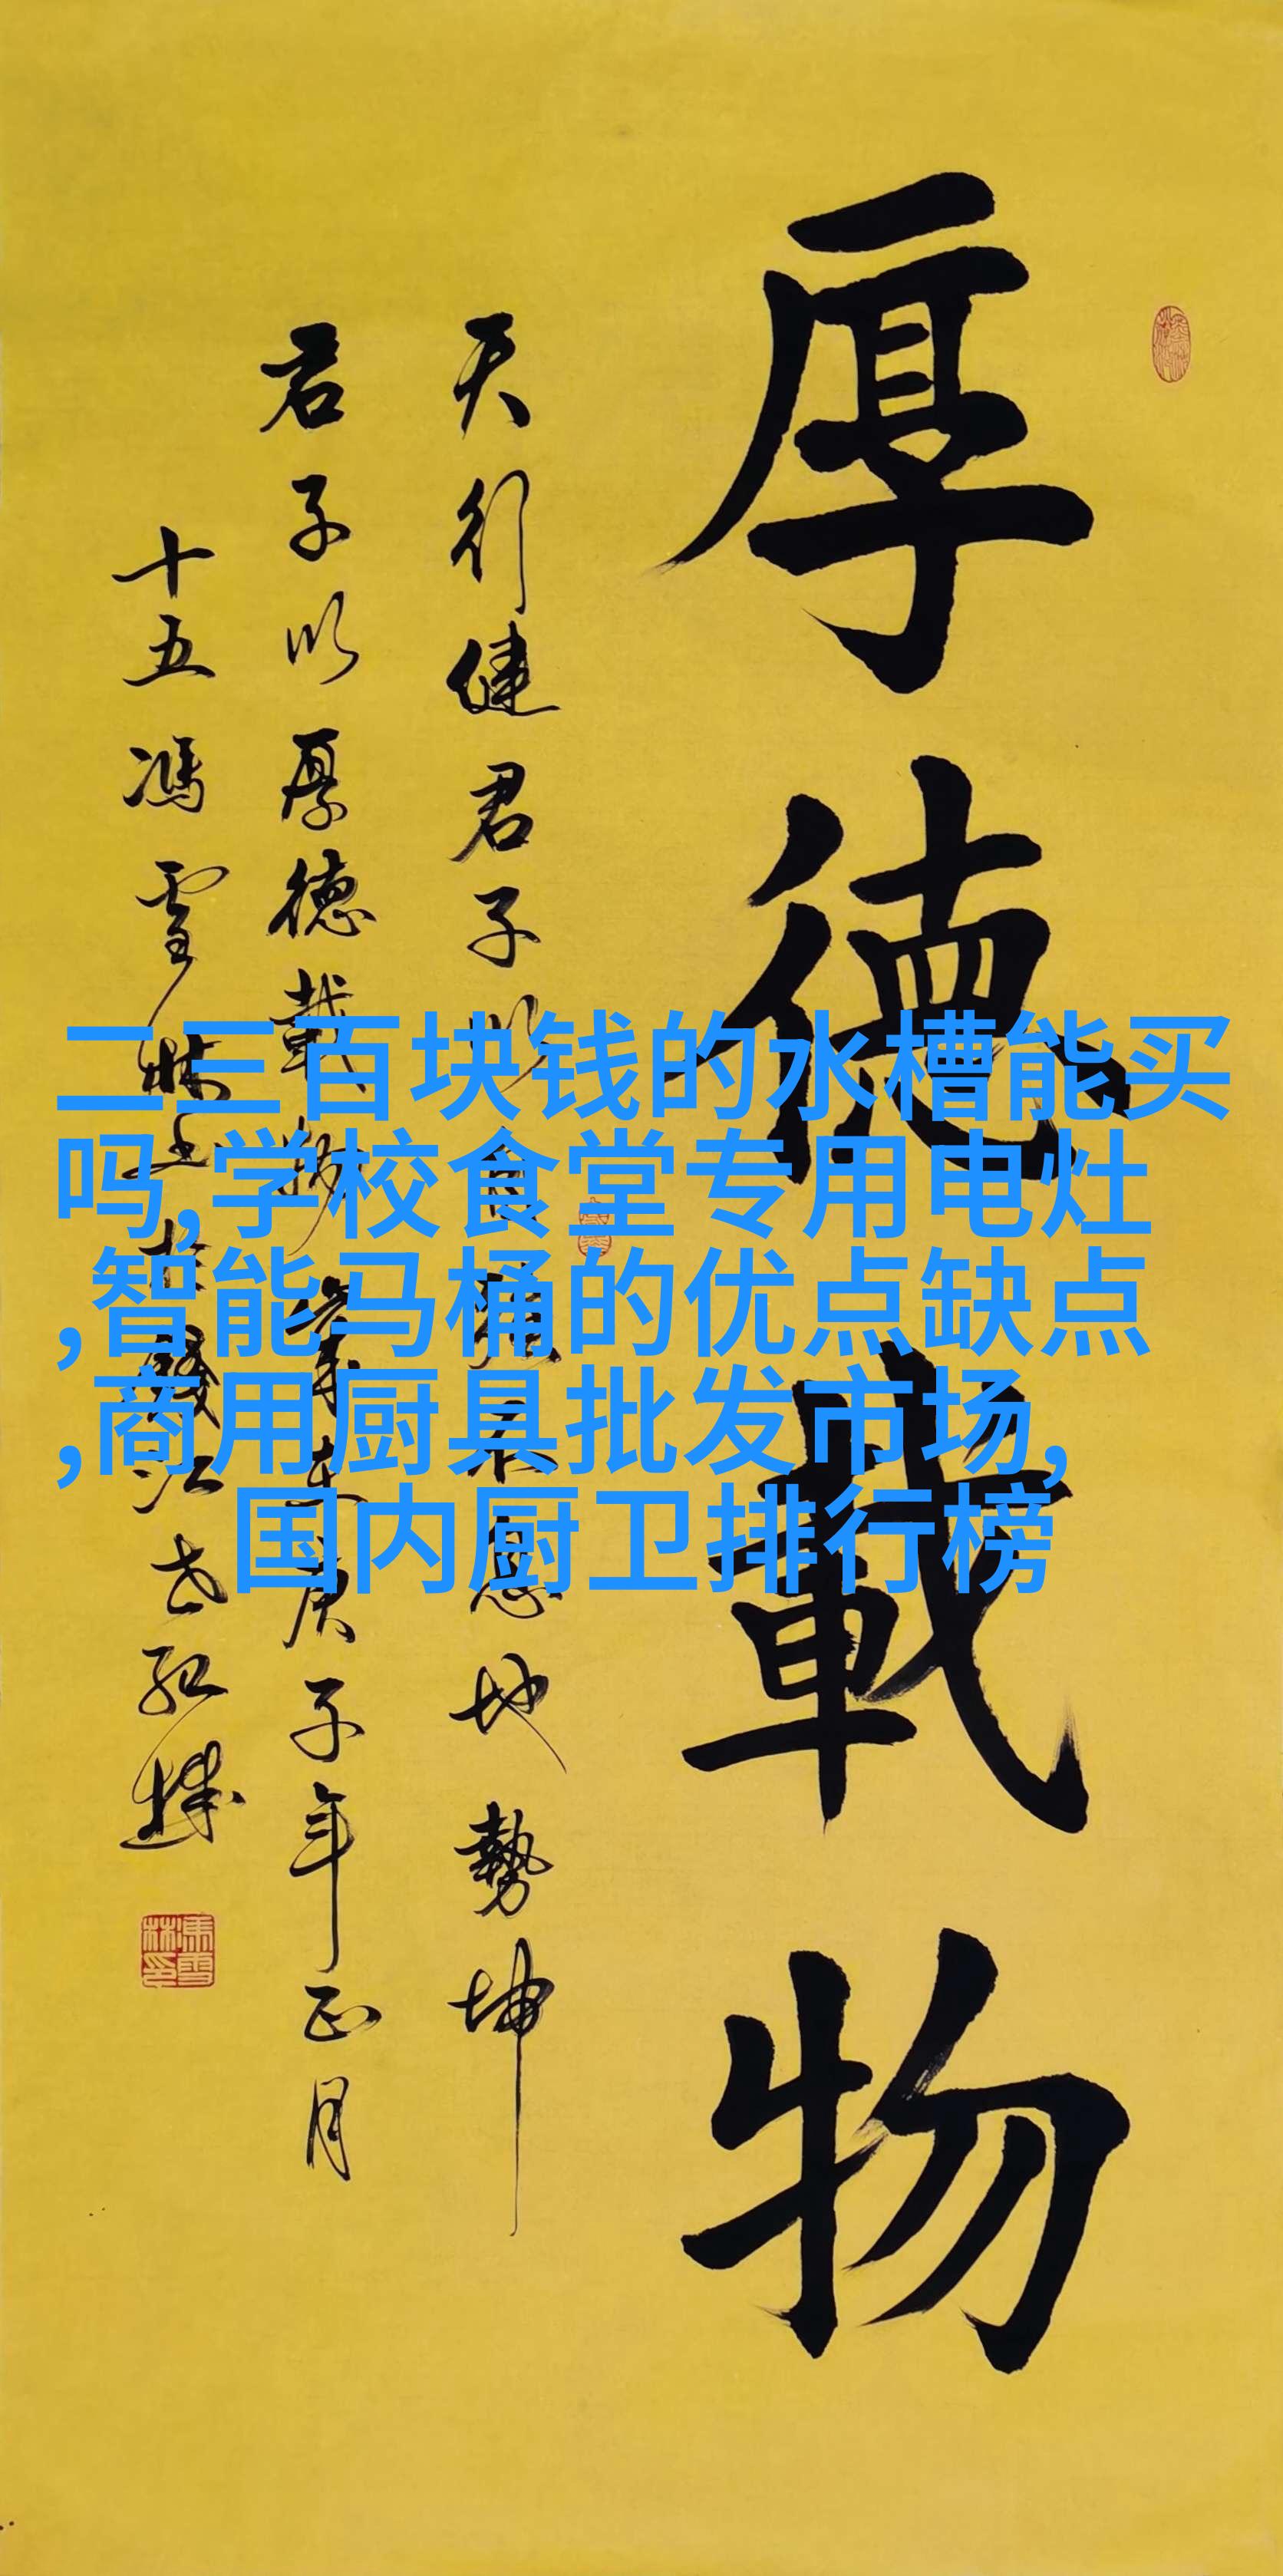 厚德載物
天行健君子以自强不息地勢坤
君子以厚德載物 歲在庚子年正月
十五馮雪林書於錢江
二三百块钱的水槽能买
吗,学校食堂专用电灶
,智能马桶的优点缺点
,商用厨具批发市场,
国内厨卫排行榜